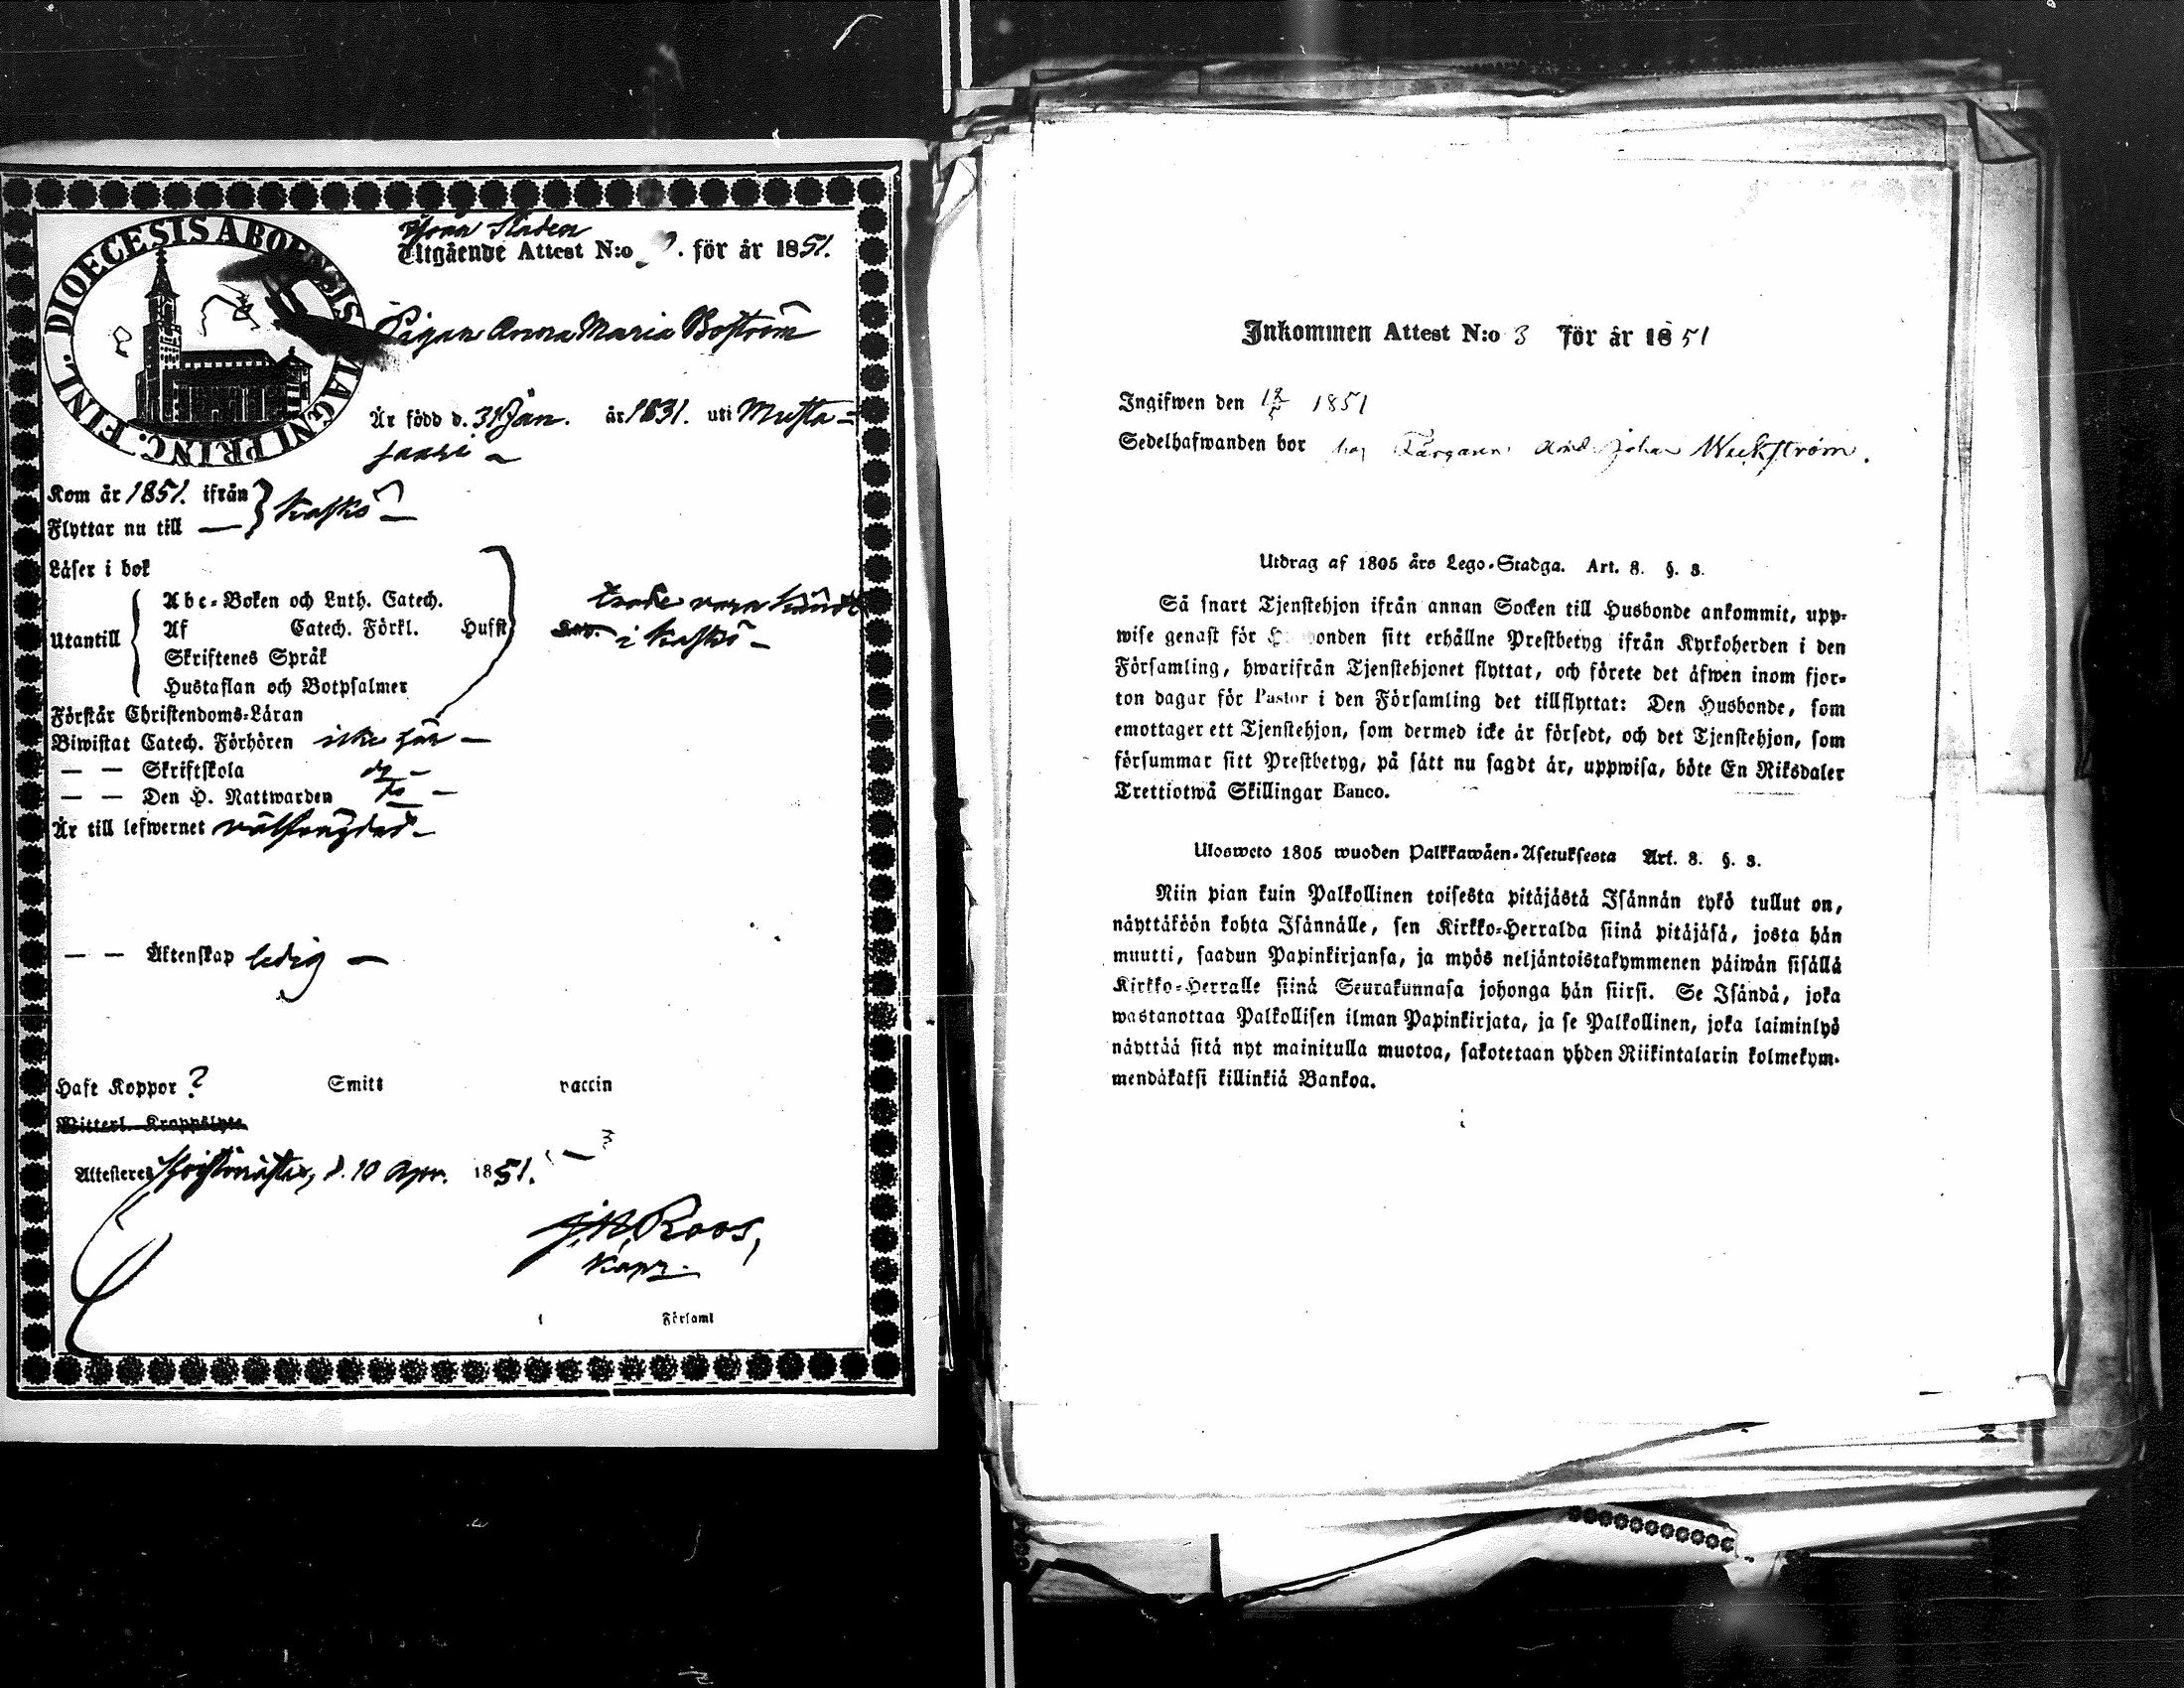 DIOECESIS ABOENSIS MAGNI PRINC. FINL.
från Staden
Utgående Attest N:o . för år 1851.
Pigan Anna Maria Boström
Är född d. 31 Jan. år 1831. uti Musta-
saari
Kom år 1851. ifrån
Flyttar nu till — } Kaskö —
Läser i bok
Utantill
Abc-Boken och Luth. Catech.
Af Catech. Förkl. Hussl
Skriftenes Språk
Hustaflan och Botpsalmer
torde vara kändt
i Kaskö —
Förstår Christendoms-Läran
Biwistat Catech. Förhören icke här —
— — Skriftskola do —
— — Den H. Nattwarden do —
Är till lefwernet välfrägdad —
— — Äktenskap ledig —
Haft Koppor ? Smitt vaccin
Witterl. Kroppslyte
Attesteres Christinestad, d. 10 Apr. 1851.
J. N. Roos,
Kapn.
Församl
Inkommen Attest N:o 3 för år 1851
Ingifwen den 12/5 1851
Sedelhafwanden bor hos Färgaren And. Johan Weckström.
Utdrag af 1805 års Lego-Stadga. Art. 8. §. 3.
Så snart Tjenstehjon ifrån annan Socken till Husbonde ankommit, upp-
wise genast för H onden sitt erhållne Prestbetyg ifrån Kyrkoherden i den
Församling, hwarifrån Tjenstehjonet flyttat, och förete det äfwen inom fjor-
ton dagar för Pastor i den Församling det tillflyttat: Den Husbonde, som
emottager ett Tjenstehjon, som dermed icke är försedt, och det Tjenstehjon, som
försummar sitt Prestbetyg, på sätt nu sagdt är, uppwisa, böte En Riksdaler
Trettiotwå Skillingar Banco.
Ulosweto 1805 wuoden Palkkawäen-Asetuksesta Art. 8. §. 3.
Niin pian kuin Palkollinen toisesta pitäjästä Isännän tykö tullut on,
näyttäköön kohta Isännälle, sen Kirkko-Herralda siinä pitäjäsä, josta hän
muutti, saadun Papinkirjansa, ja myös neljäntoistakymmenen päiwän sisällä
Kirkko-Herralle siinä Seurakunnasa johonga hän siirsi. Se Isändä, joka
wastanottaa Palkollisen ilman Papinkirjata, ja se Palkollinen, joka laiminlyö
näyttää sitä nyt mainitulla muotoa, sakotetaan yhden Riikintalarin kolmekym-
mendäkaksi killinkiä Bankoa.